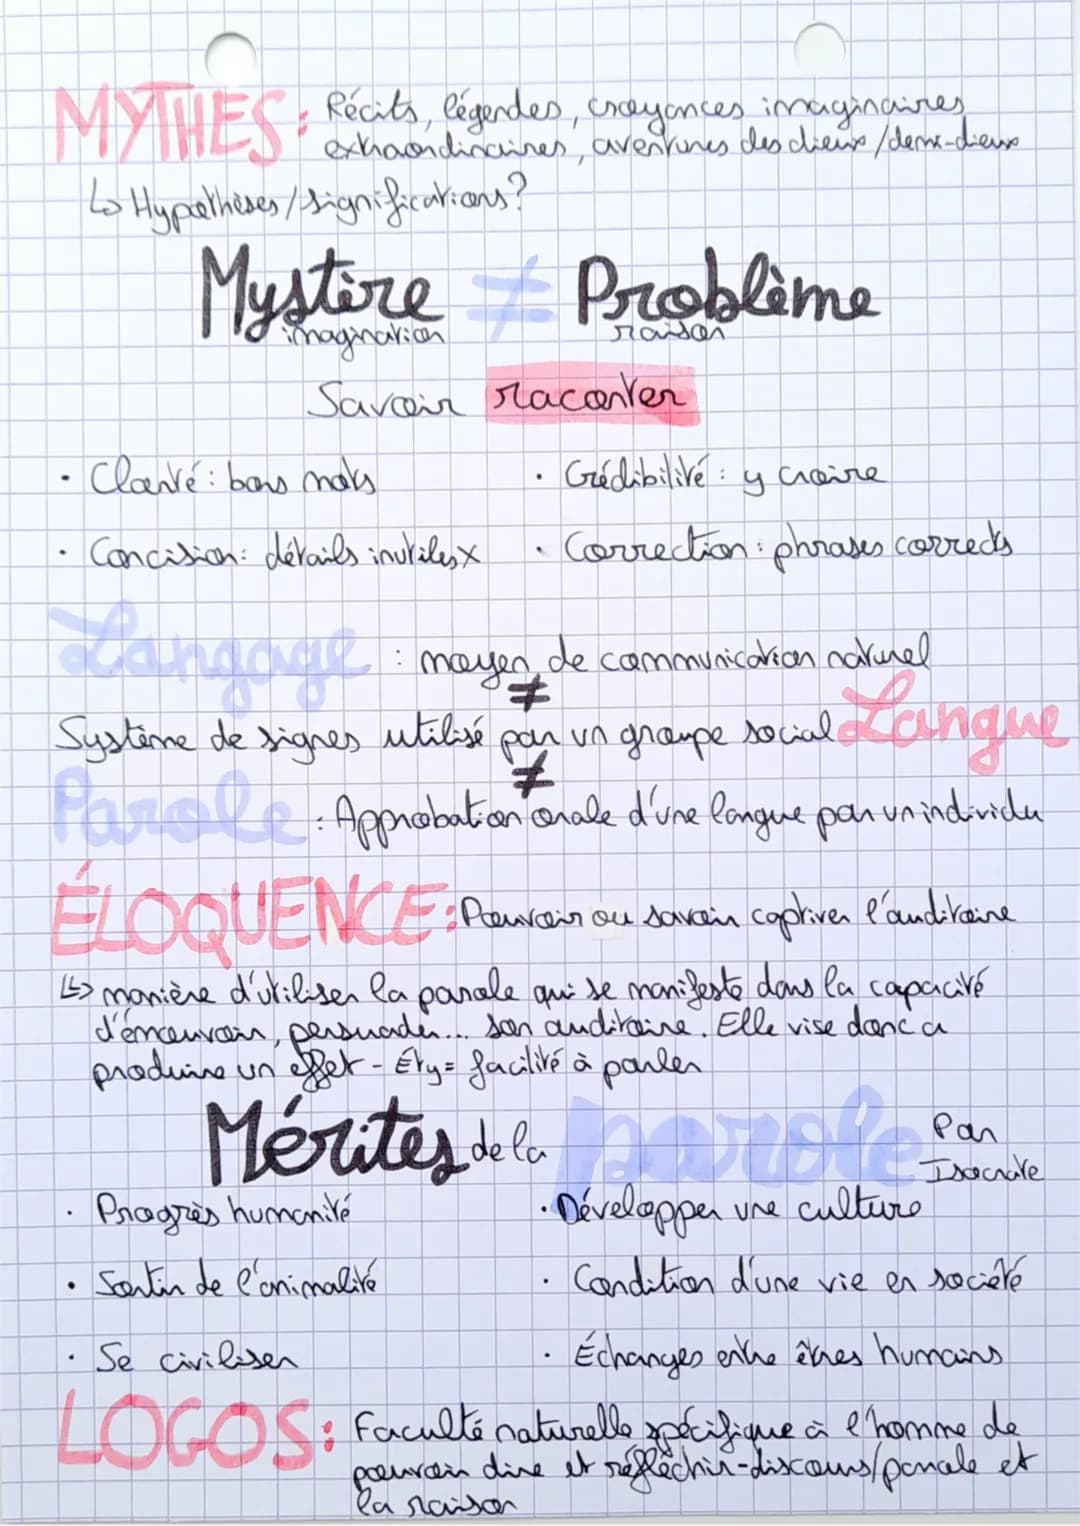 MYTHES : Récits, légendes, croyances imaginaires,
extraordinaires, aventures des dieux/demi-dieux
↳ Hypothèses/significations?
Mystère ≠ Problème
imagination raison
Savoir raconter
· Clarté : bons mots
· Crédibilité : y croire
· Concision : détails inutiles x
· Correction : phrases corrects
Langage : moyen de communication naturel
≠
Système de signes utilisé par un groupe social Langue
≠
Parole : Approbation orale d'une langue par un individu
ÉLOQUENCE : Pouvoir ou savoir captiver l'auditoire
↳ manière d'utiliser la parole qui se manifeste dans la capacité
d'émouvoir, persuader... son auditoire. Elle vise donc a
produire un effet - Éty = facilité à parler
Mérites de la parole Par
Isocrate
· Progrès humanité
· Développer une culture
· Sortir de l'animalité
· Condition d'une vie en société
· Se civiliser
· Échanges entre êtres humains
LOGOS : Faculté naturelle spécifique à l'homme de
pouvoir dire et réfléchir - discours/parole et
la raison